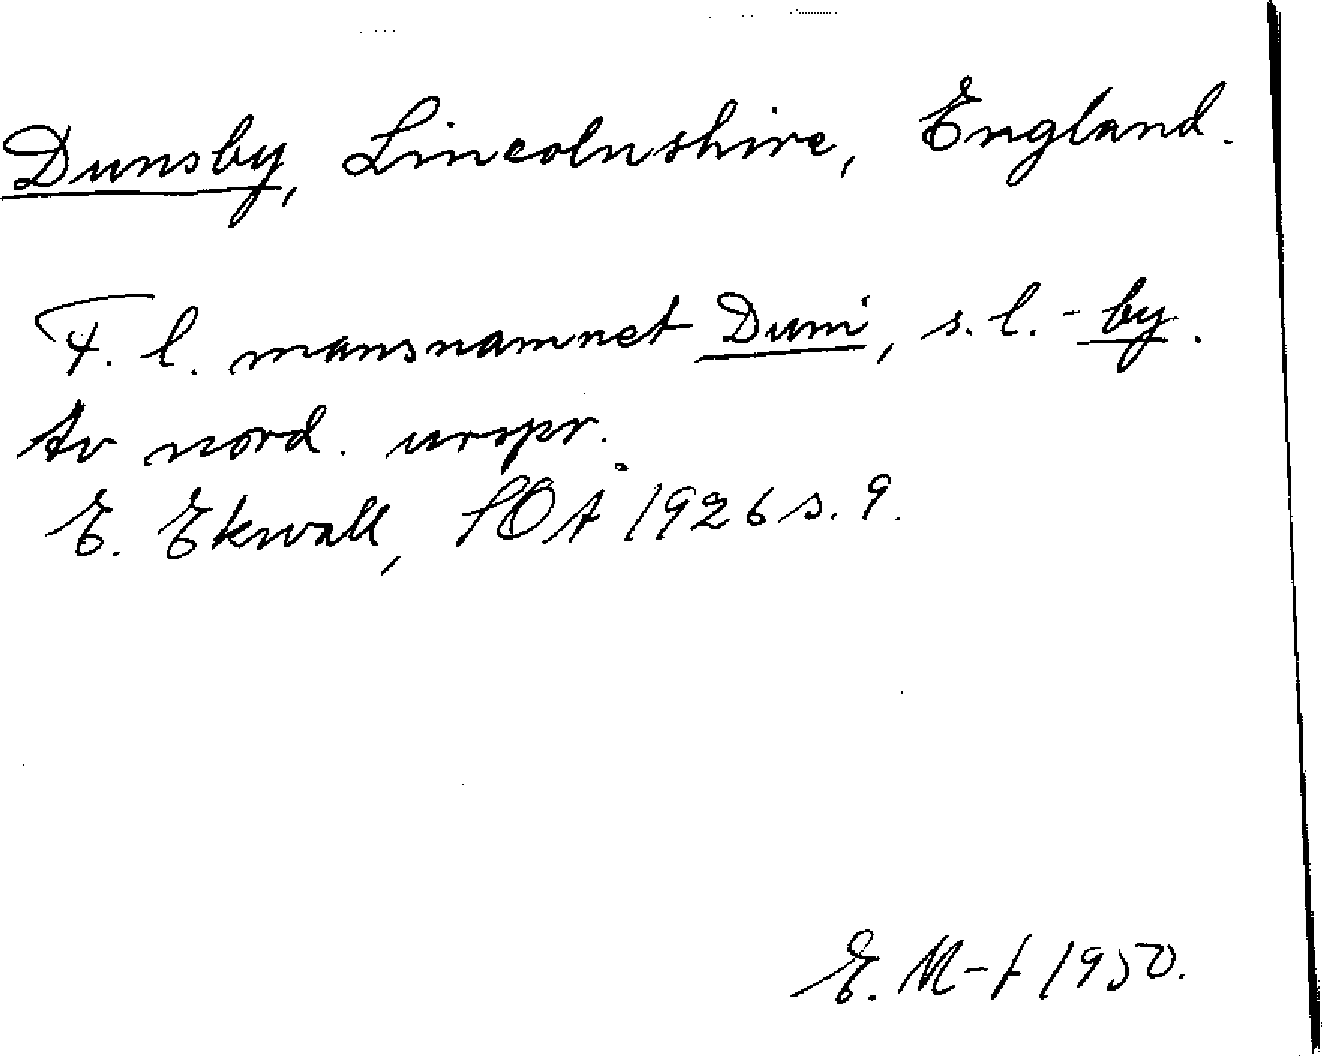 Dunsby, Lincolnshire, England.
F. l. mansnamnet Duni, s. l. - by.
Av nord. urspr.
E. Ekwall, SOÅ 1926 s. 9.
E. M-t 1950.